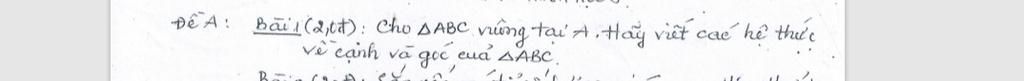 ĐỀ A: Bài 1 (2,0đ): Cho △ABC vuông tại A. Hãy viết các hệ thức
về cạnh và góc của △ABC.